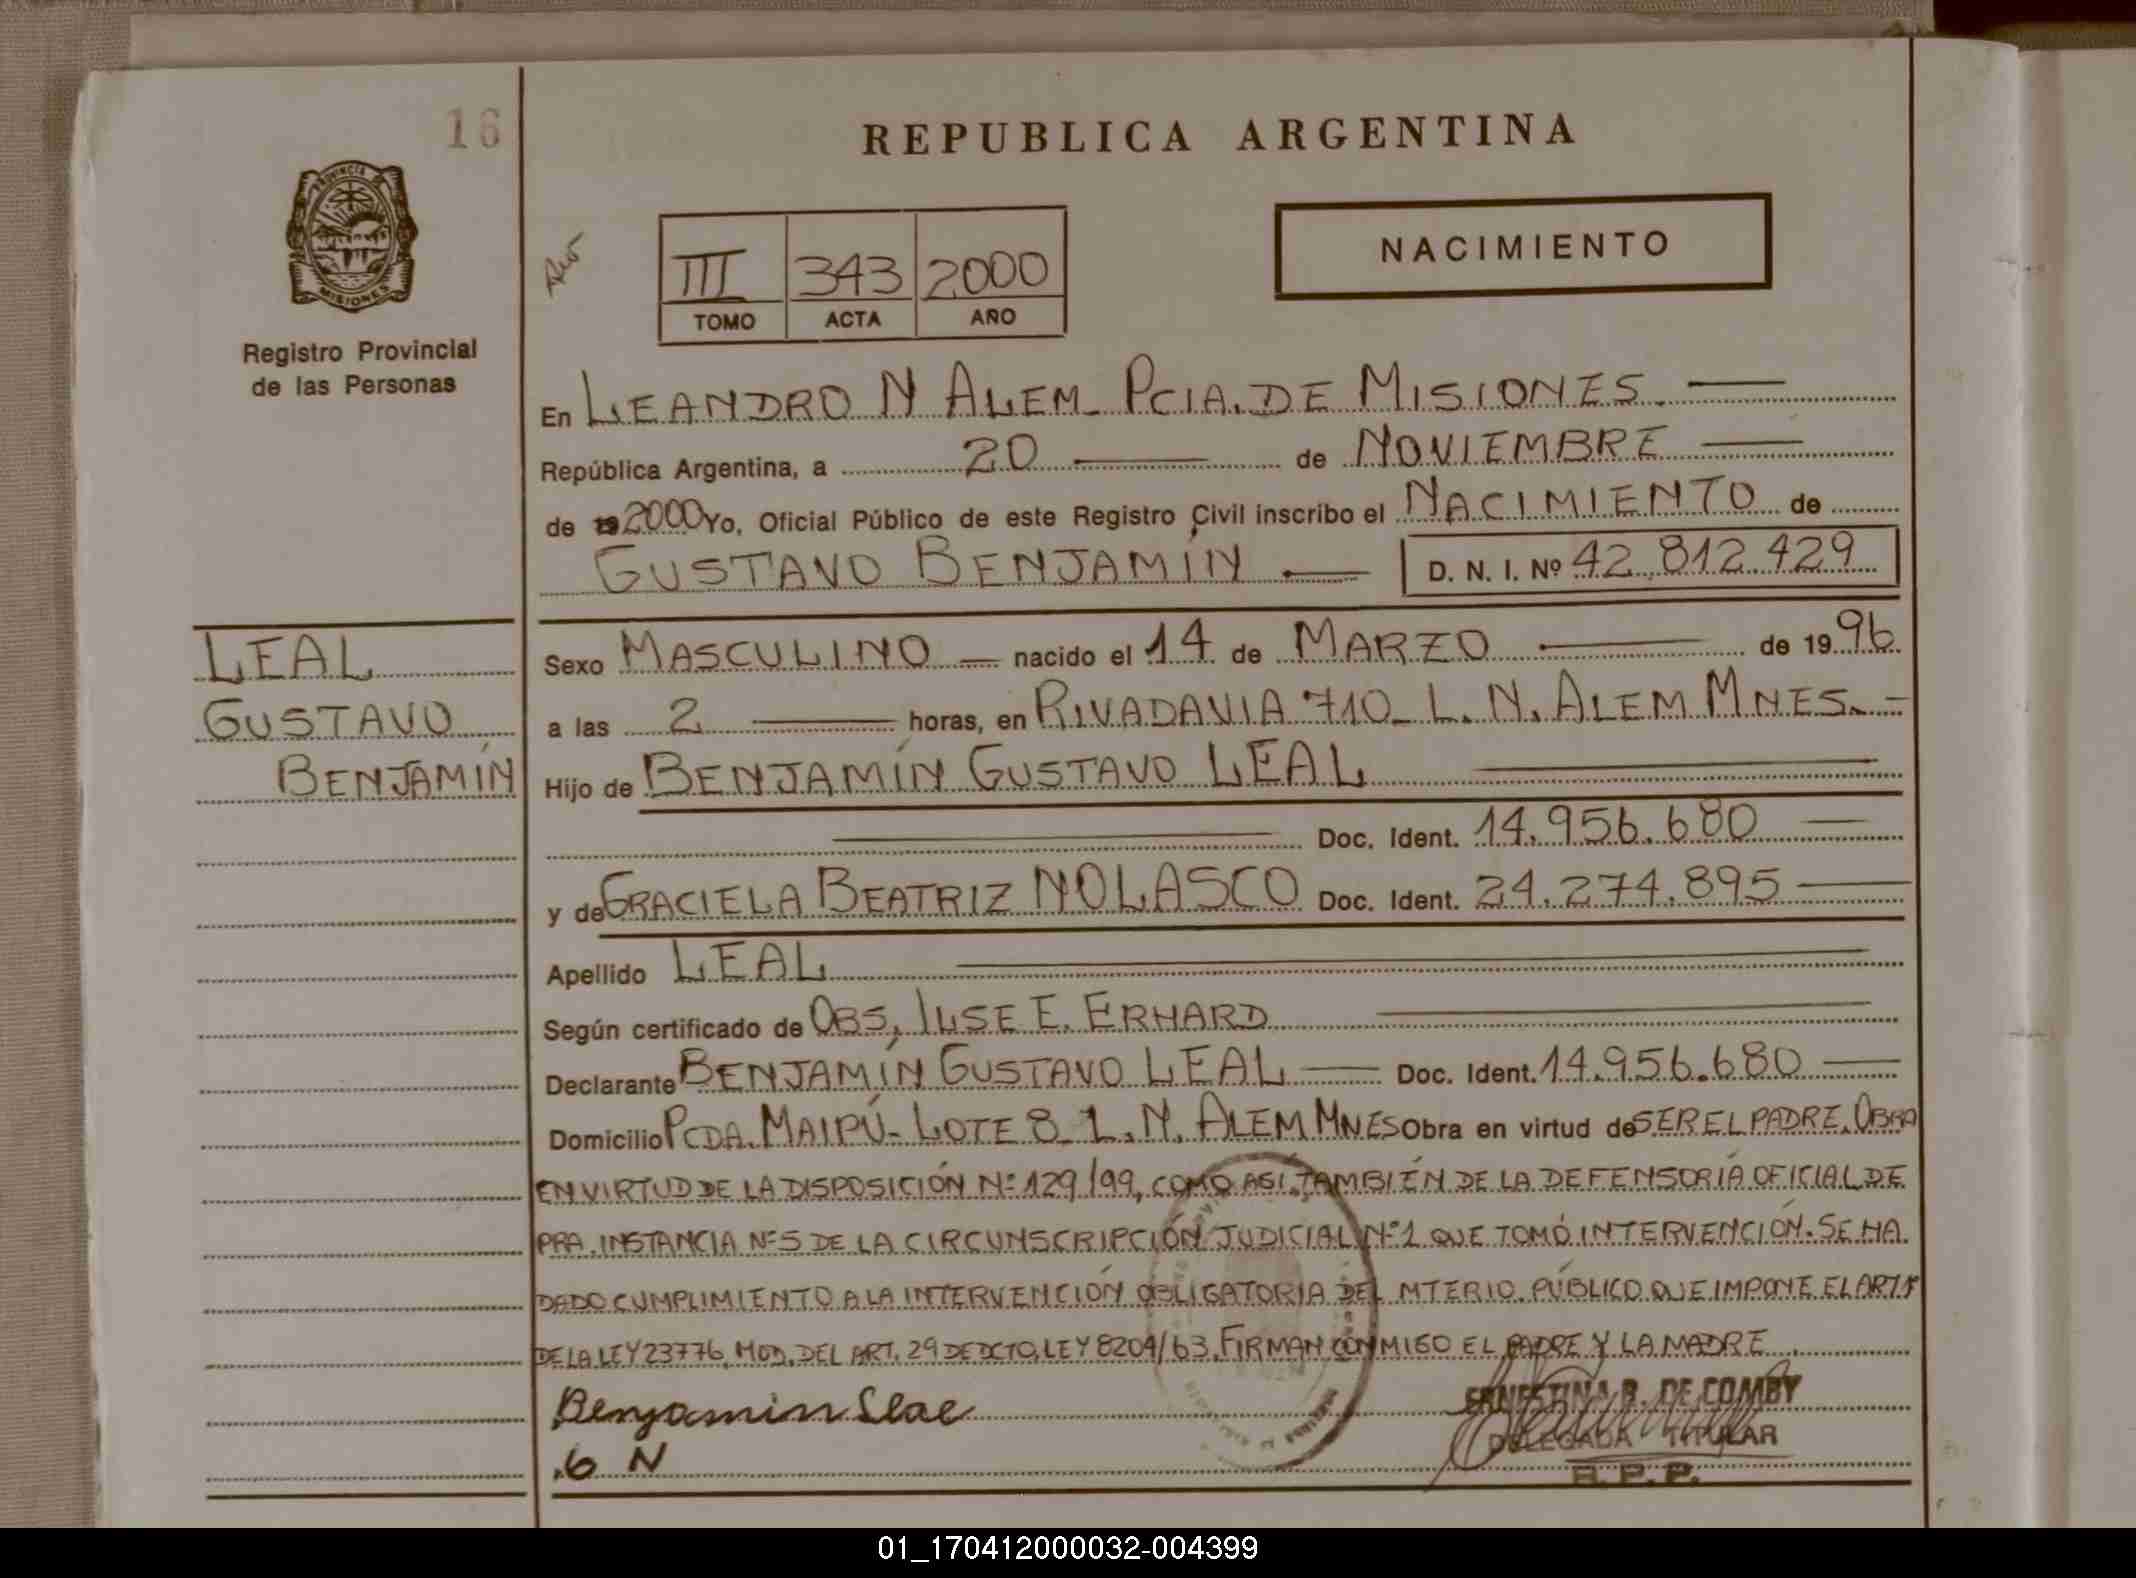 16
PROVINCIA DE
MISIONES
Registro Provincial
de las Personas
REPUBLICA ARGENTINA
III 343 2000
TOMO ACTA AÑO
NACIMIENTO
En LEANDRO N ALEM PCIA. DE MISIONES.
República Argentina, a 20 de NOVIEMBRE
de 19 2000 Yo, Oficial Público de este Registro Civil inscribo el NACIMIENTO de
GUSTAVO BENJAMÍN D. N. I. Nº 42.812.429
LEAL
GUSTAVO
BENJAMÍN
Sexo MASCULINO nacido el 14 de MARZO de 1996
a las 2 horas, en RIVADAVIA 710_ L. N. ALEM MNES.
Hijo de BENJAMÍN GUSTAVO LEAL
Doc. Ident. 14.956.680
y de GRACIELA BEATRIZ NOLASCO Doc. Ident. 24.274.895
Apellido LEAL
Según certificado de OBS, ILSE E. ERHARD
Declarante BENJAMÍN GUSTAVO LEAL Doc. Ident. 14.956.680
Domicilio PCDA. MAIPÚ- LOTE 8_ L. N. ALEM MNES Obra en virtud de SER EL PADRE. OBRA
EN VIRTUD DE LA DISPOSICIÓN Nº 129/99, COMO ASÍ TAMBIÉN DE LA DEFENSORÍA OFICIAL DE
PRA. INSTANCIA Nº 5 DE LA CIRCUNSCRIPCIÓN JUDICIAL Nº 1 QUE TOMÓ INTERVENCIÓN. SE HA
DADO CUMPLIMIENTO A LA INTERVENCIÓN OBLIGATORIA DEL MTERIO. PÚBLICO QUE IMPONE EL ART 1º
DE LA LEY 23776, MOD. DEL ART. 29 DE DCTO. LEY 8204/63. FIRMAN CONMIGO EL PADRE Y LA MADRE
Benjamin Leae
G N
ERNESTINA B. DE COMBY
DELEGADA TITULAR
R. P. P.
01_170412000032-004399